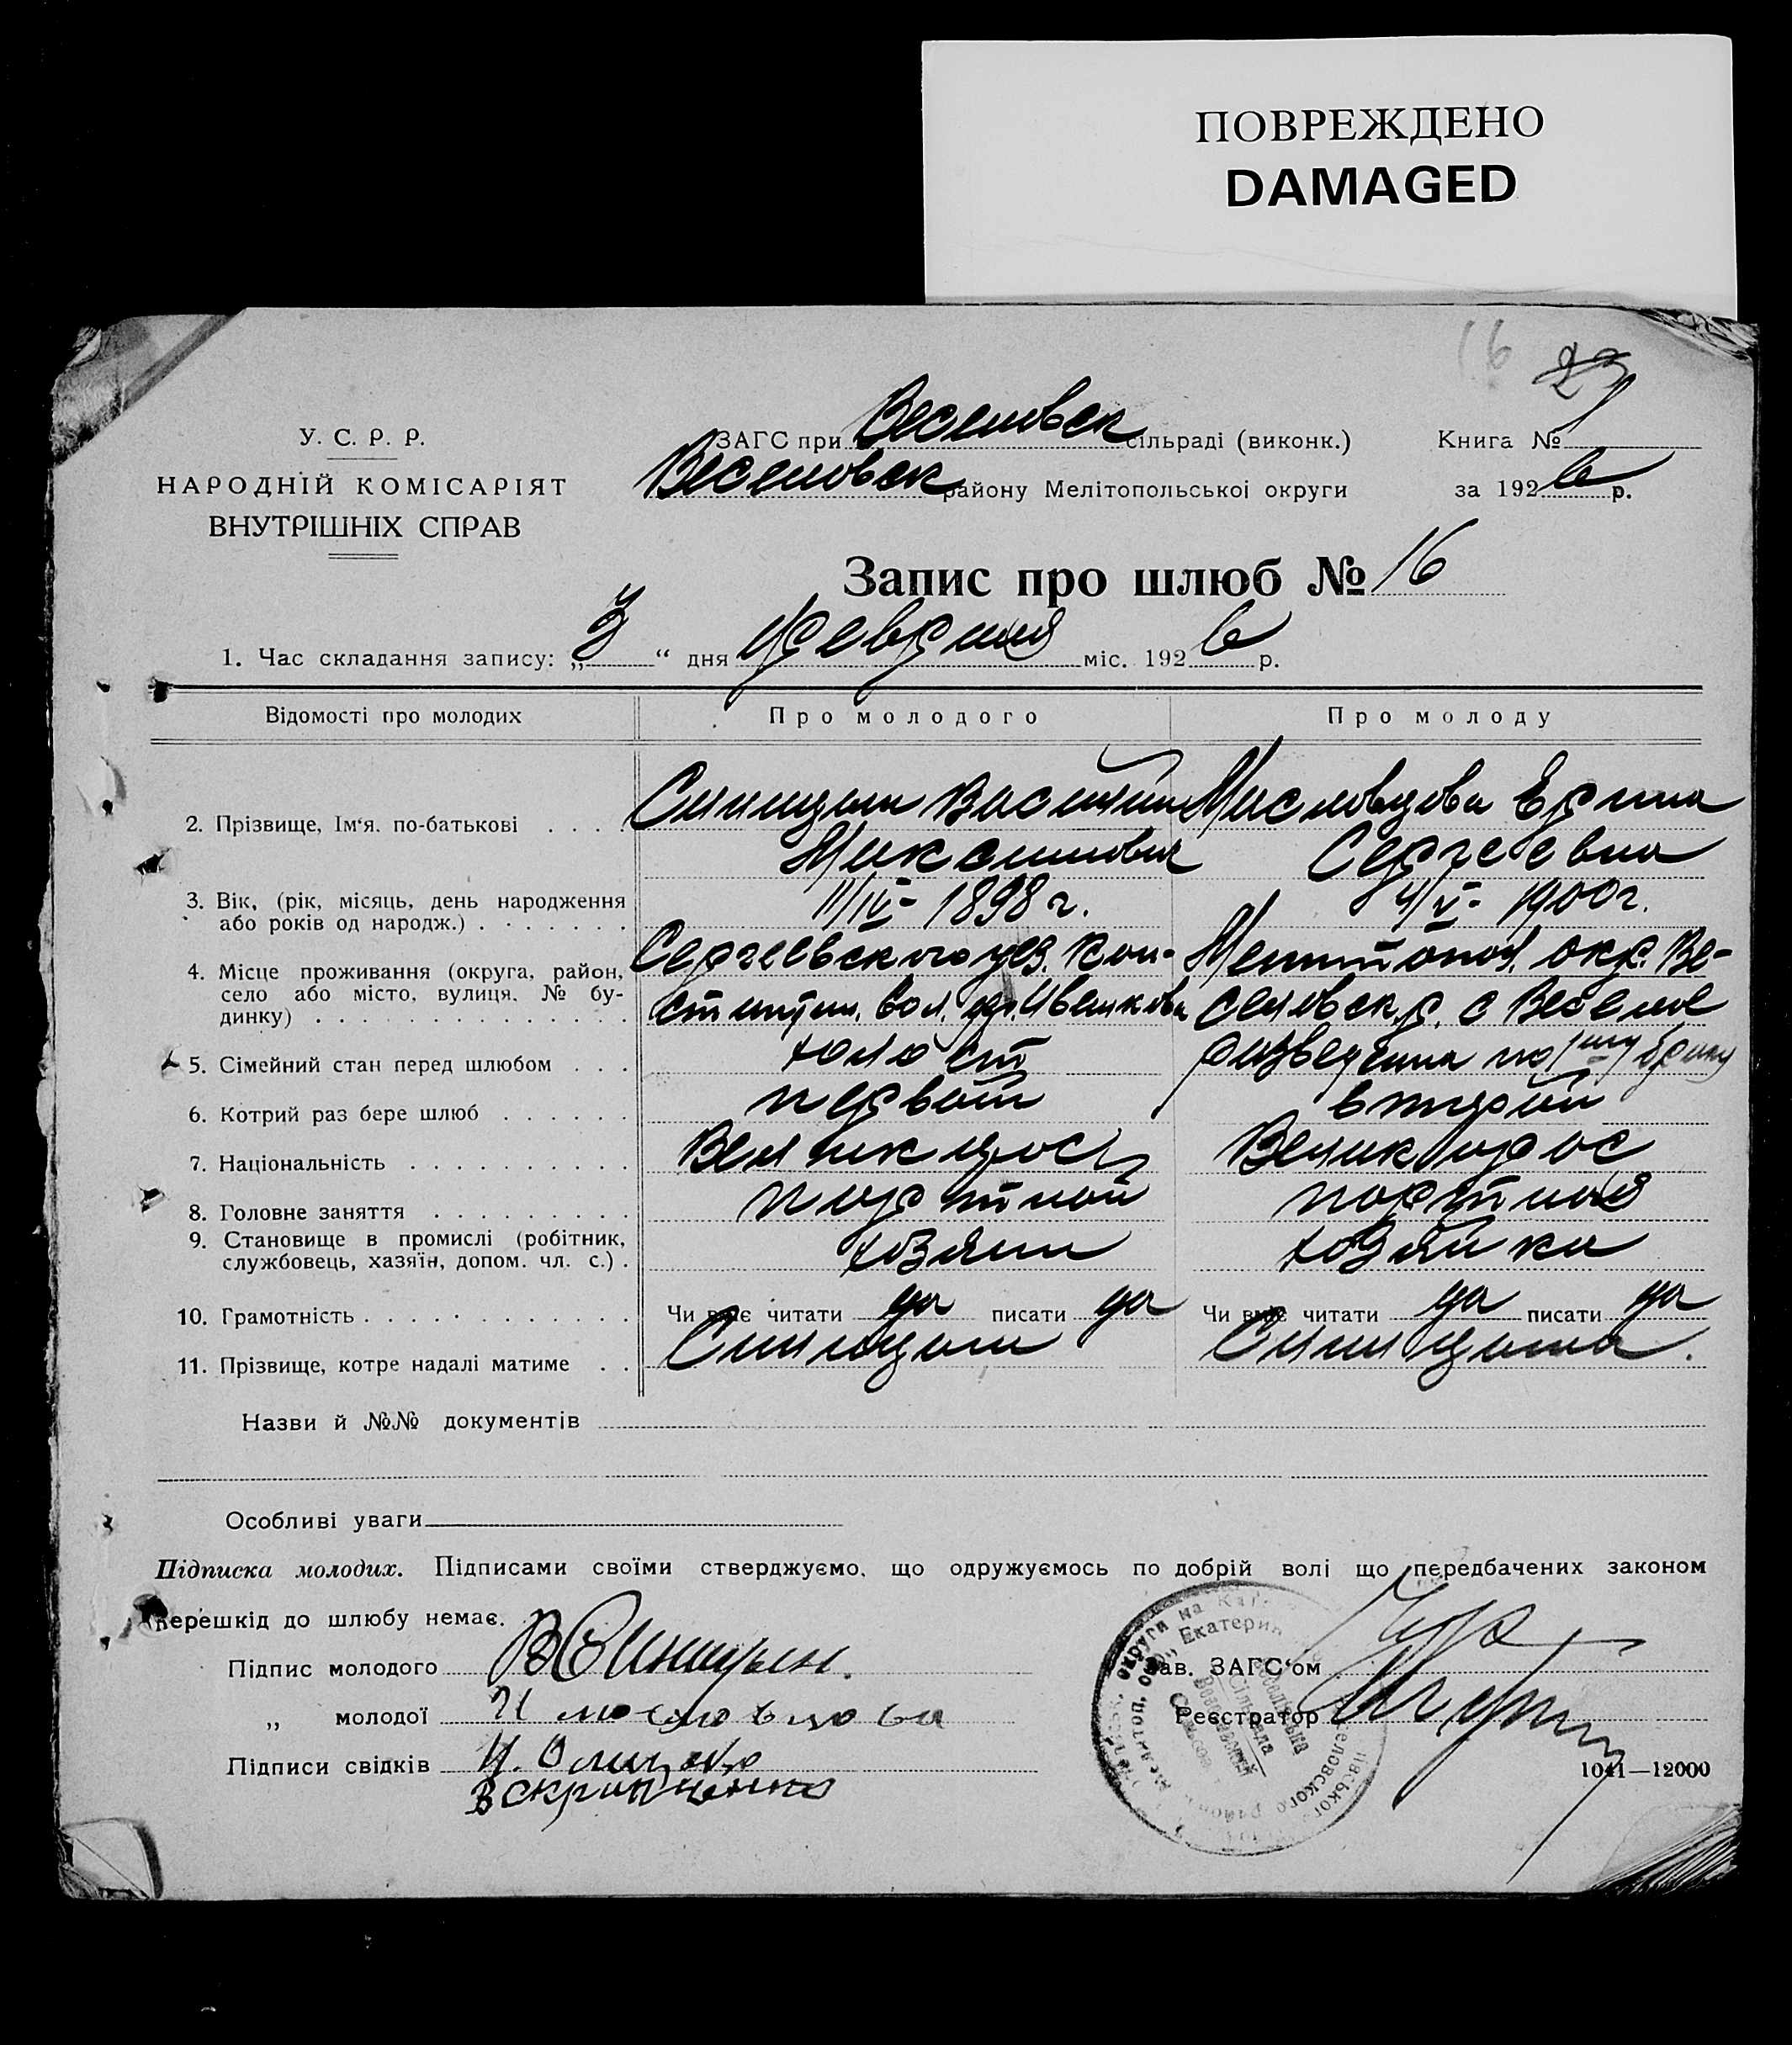 ПОВРЕЖДЕНО
DAMAGED
16
У. С. Р. Р.
НАРОДНІЙ КОМІСАРІЯТ
ВНУТРІШНІХ СПРАВ
ЗАГС при Веселовск сільраді (виконк.)
Веселовск району Мелітопольської округи
Книга №
за 1926 р.
Запис про шлюб № 16
1. Час складання запису: „3“ дня февраля міс. 1926 р.
Відомості про молодих Про молодого Про молоду
2. Прізвище, Ім'я, по-батькові . . . . Синицын Василий Масловцова
Максимович Сергеевна
3. Вік, (рік, місяць, день народження 11/IV- 1898 г. 4/V- 1900 г.
або років од народж.) . . . . . . .
4. Місце проживання (округа, район, Сергеевского уез. Кон- Мелитопол. окр. Ве-
село або місто, вулиця, № бу- вол. селовск. р. с Веселое
динку) . . . . . . . . . . . . . .
5. Сімейний стан перед шлюбом . . . холост разведенна по 1му браку
6. Котрий раз бере шлюб . . . . . . первый второй
7. Національність . . . . . . . . . . Великорос Великорос
8. Головне заняття . . . . . . . . . портной портная
9. Становище в промислі (робітник, хозяин хозяйка
службовець, хазяїн, допом. чл. с.) .
10. Грамотність . . . . . . . . . . . . Чи вміє читати да писати да Чи вміє читати да писати да
11. Прізвище, котре надалі матиме . . Синицын Синицына.
Назви й №№ документів
Особливі уваги
Підписка молодих. Підписами своїми стверджуємо, що одружуємось по добрій волі що передбачених законом
перешкід до шлюбу немає.
Підпис молодого В Синицын.
Зав. ЗАГС'ом
„ молодої И масловцова
Реєстратор
Підписи свідків
В Скрипченко
1041—12000